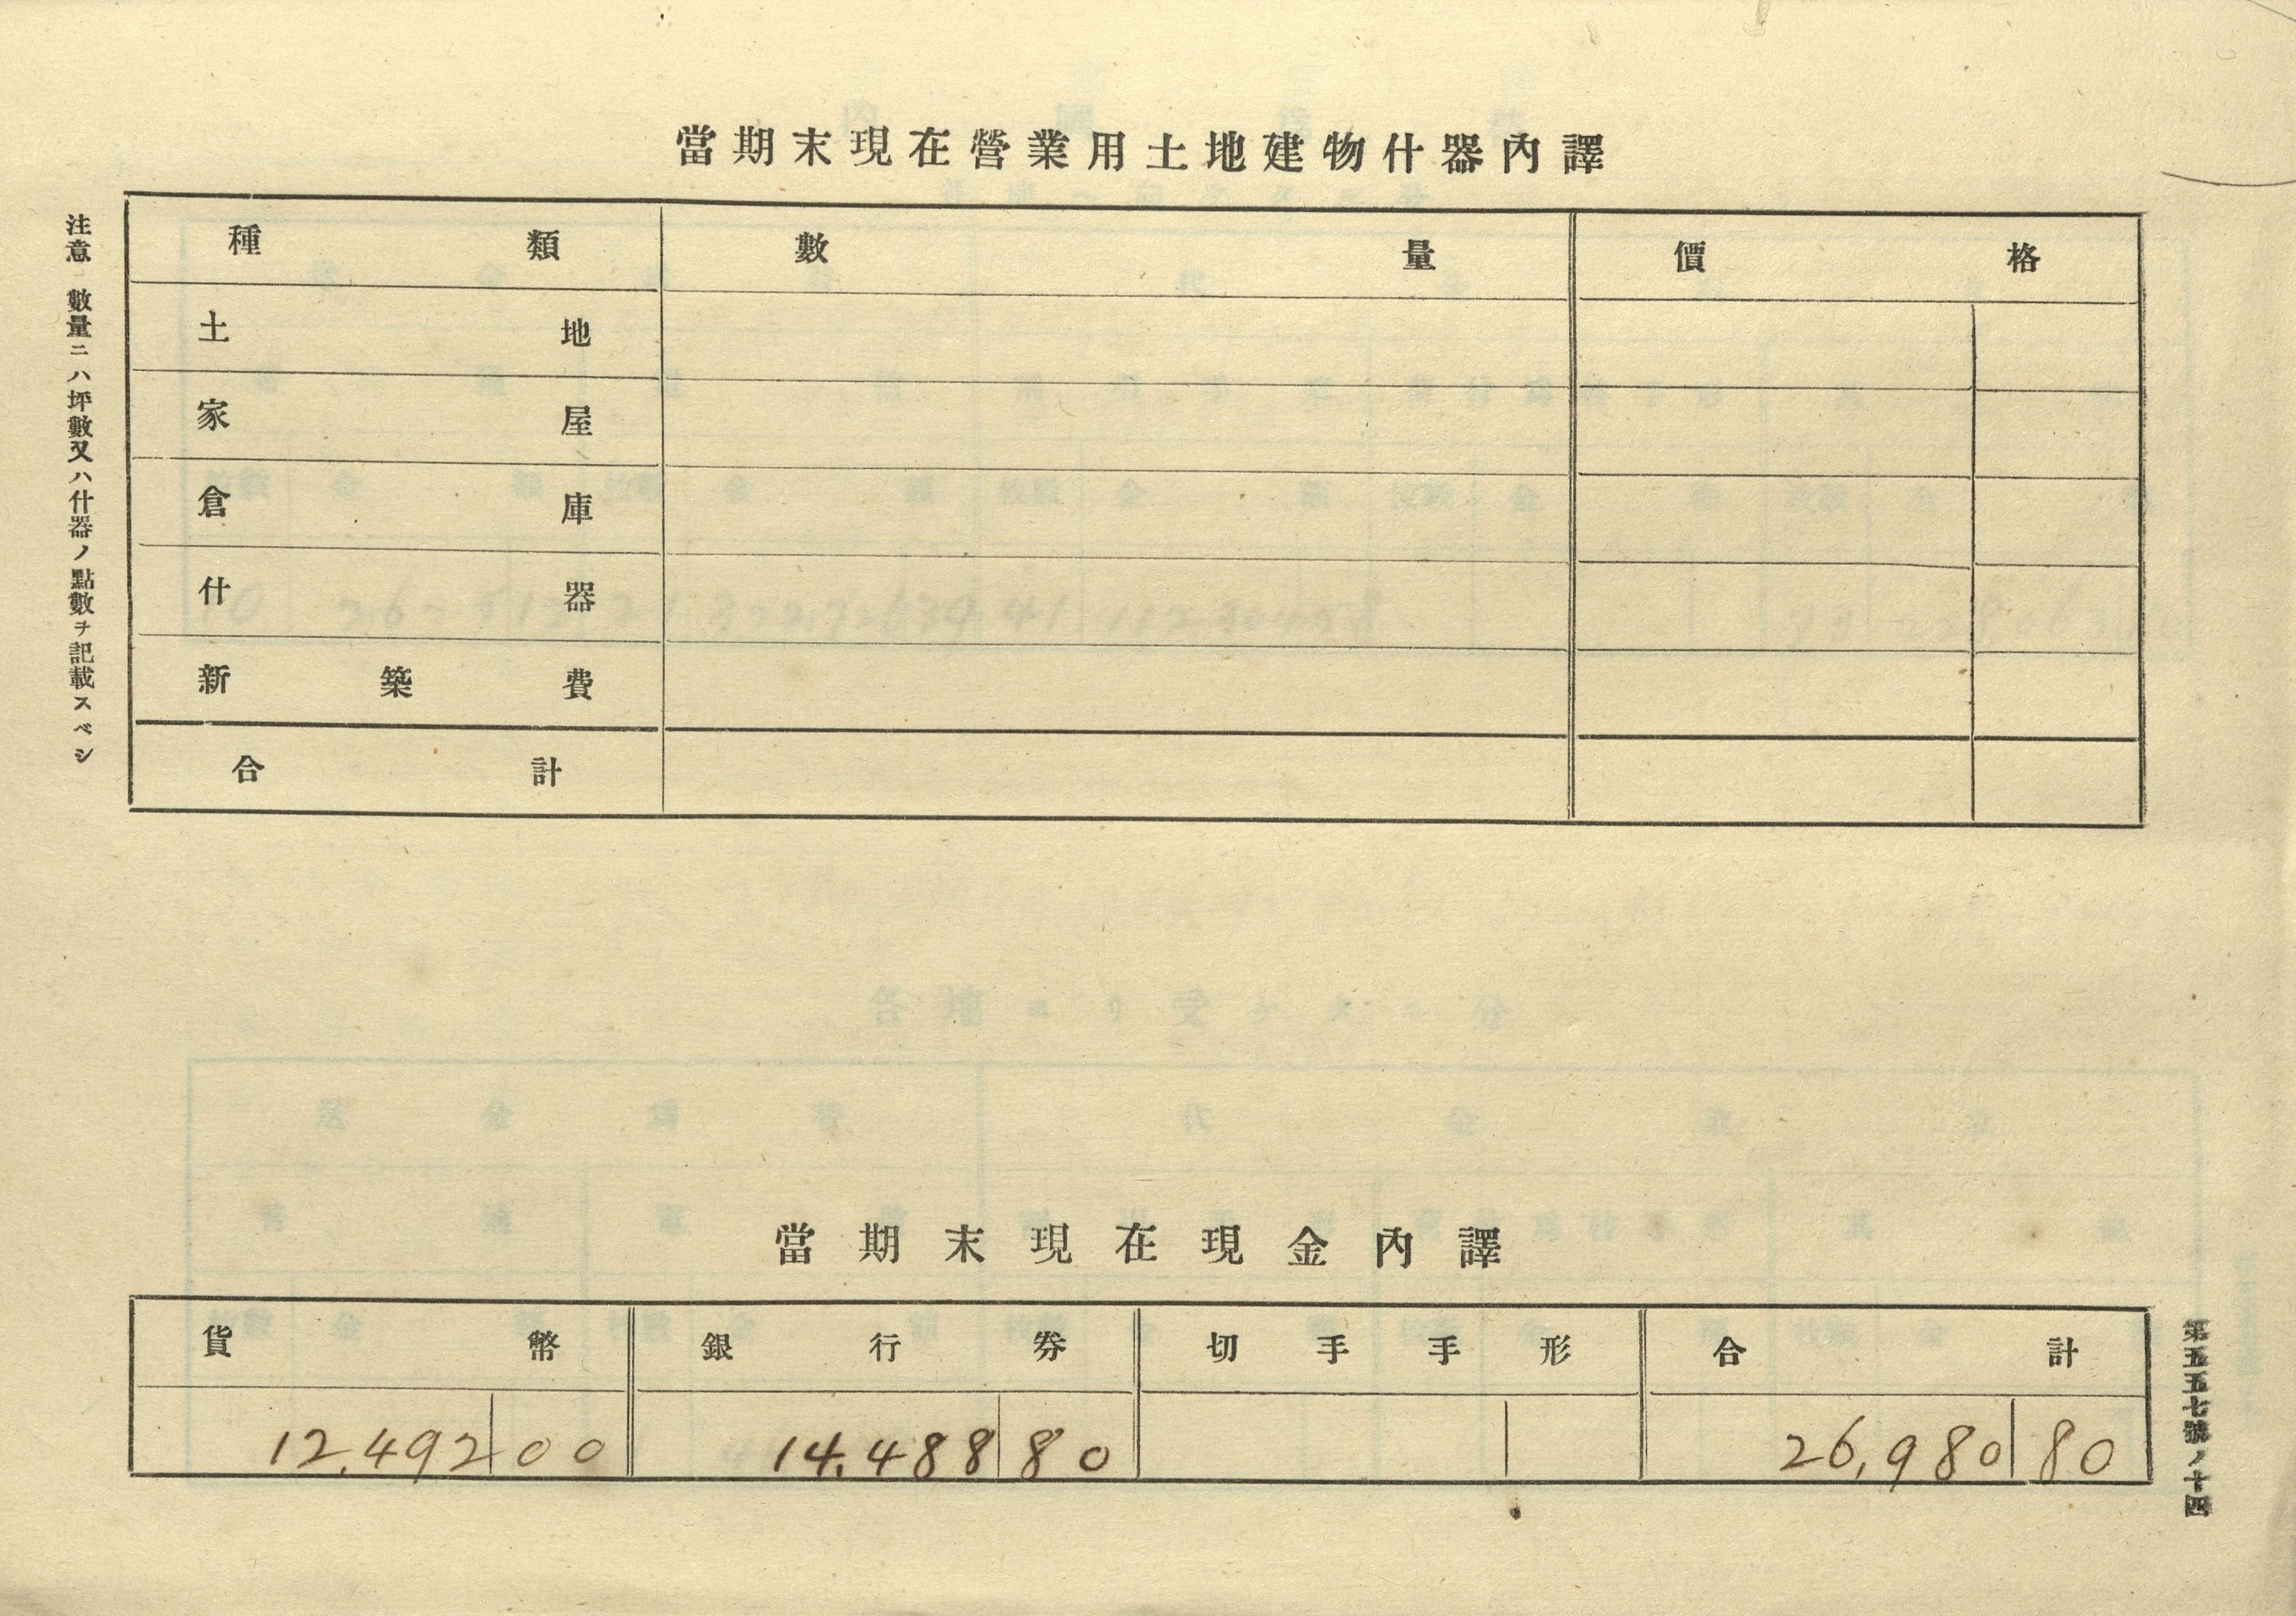 當期末現在營業用土地建物什器內譯
注意 數量ニハ坪數又ハ什器ノ點數ヲ記載スベシ
種類 數量 價格
土地
家屋
倉庫
什器
新築費
合計
當期末現在現金內譯
貨幣 銀行券 切手手形 合計
12,492 00 14,488 80 26,980 80
第五五七號ノ十四